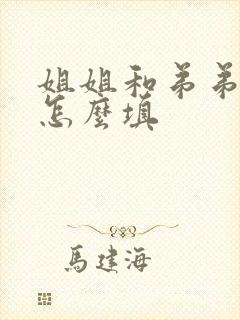 姐姐和弟弟
怎麼填
馬建海